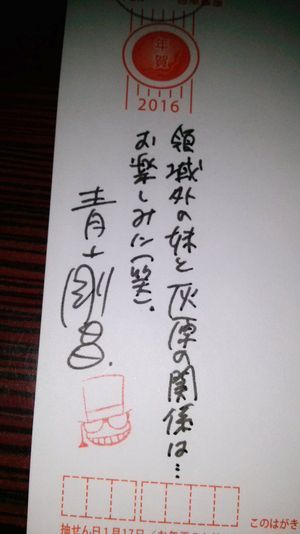 年賀
2016
領域外の妹と灰原の関係は…
お楽しみに(笑).
青山剛昌.
このはがき
抽せん日1月17日